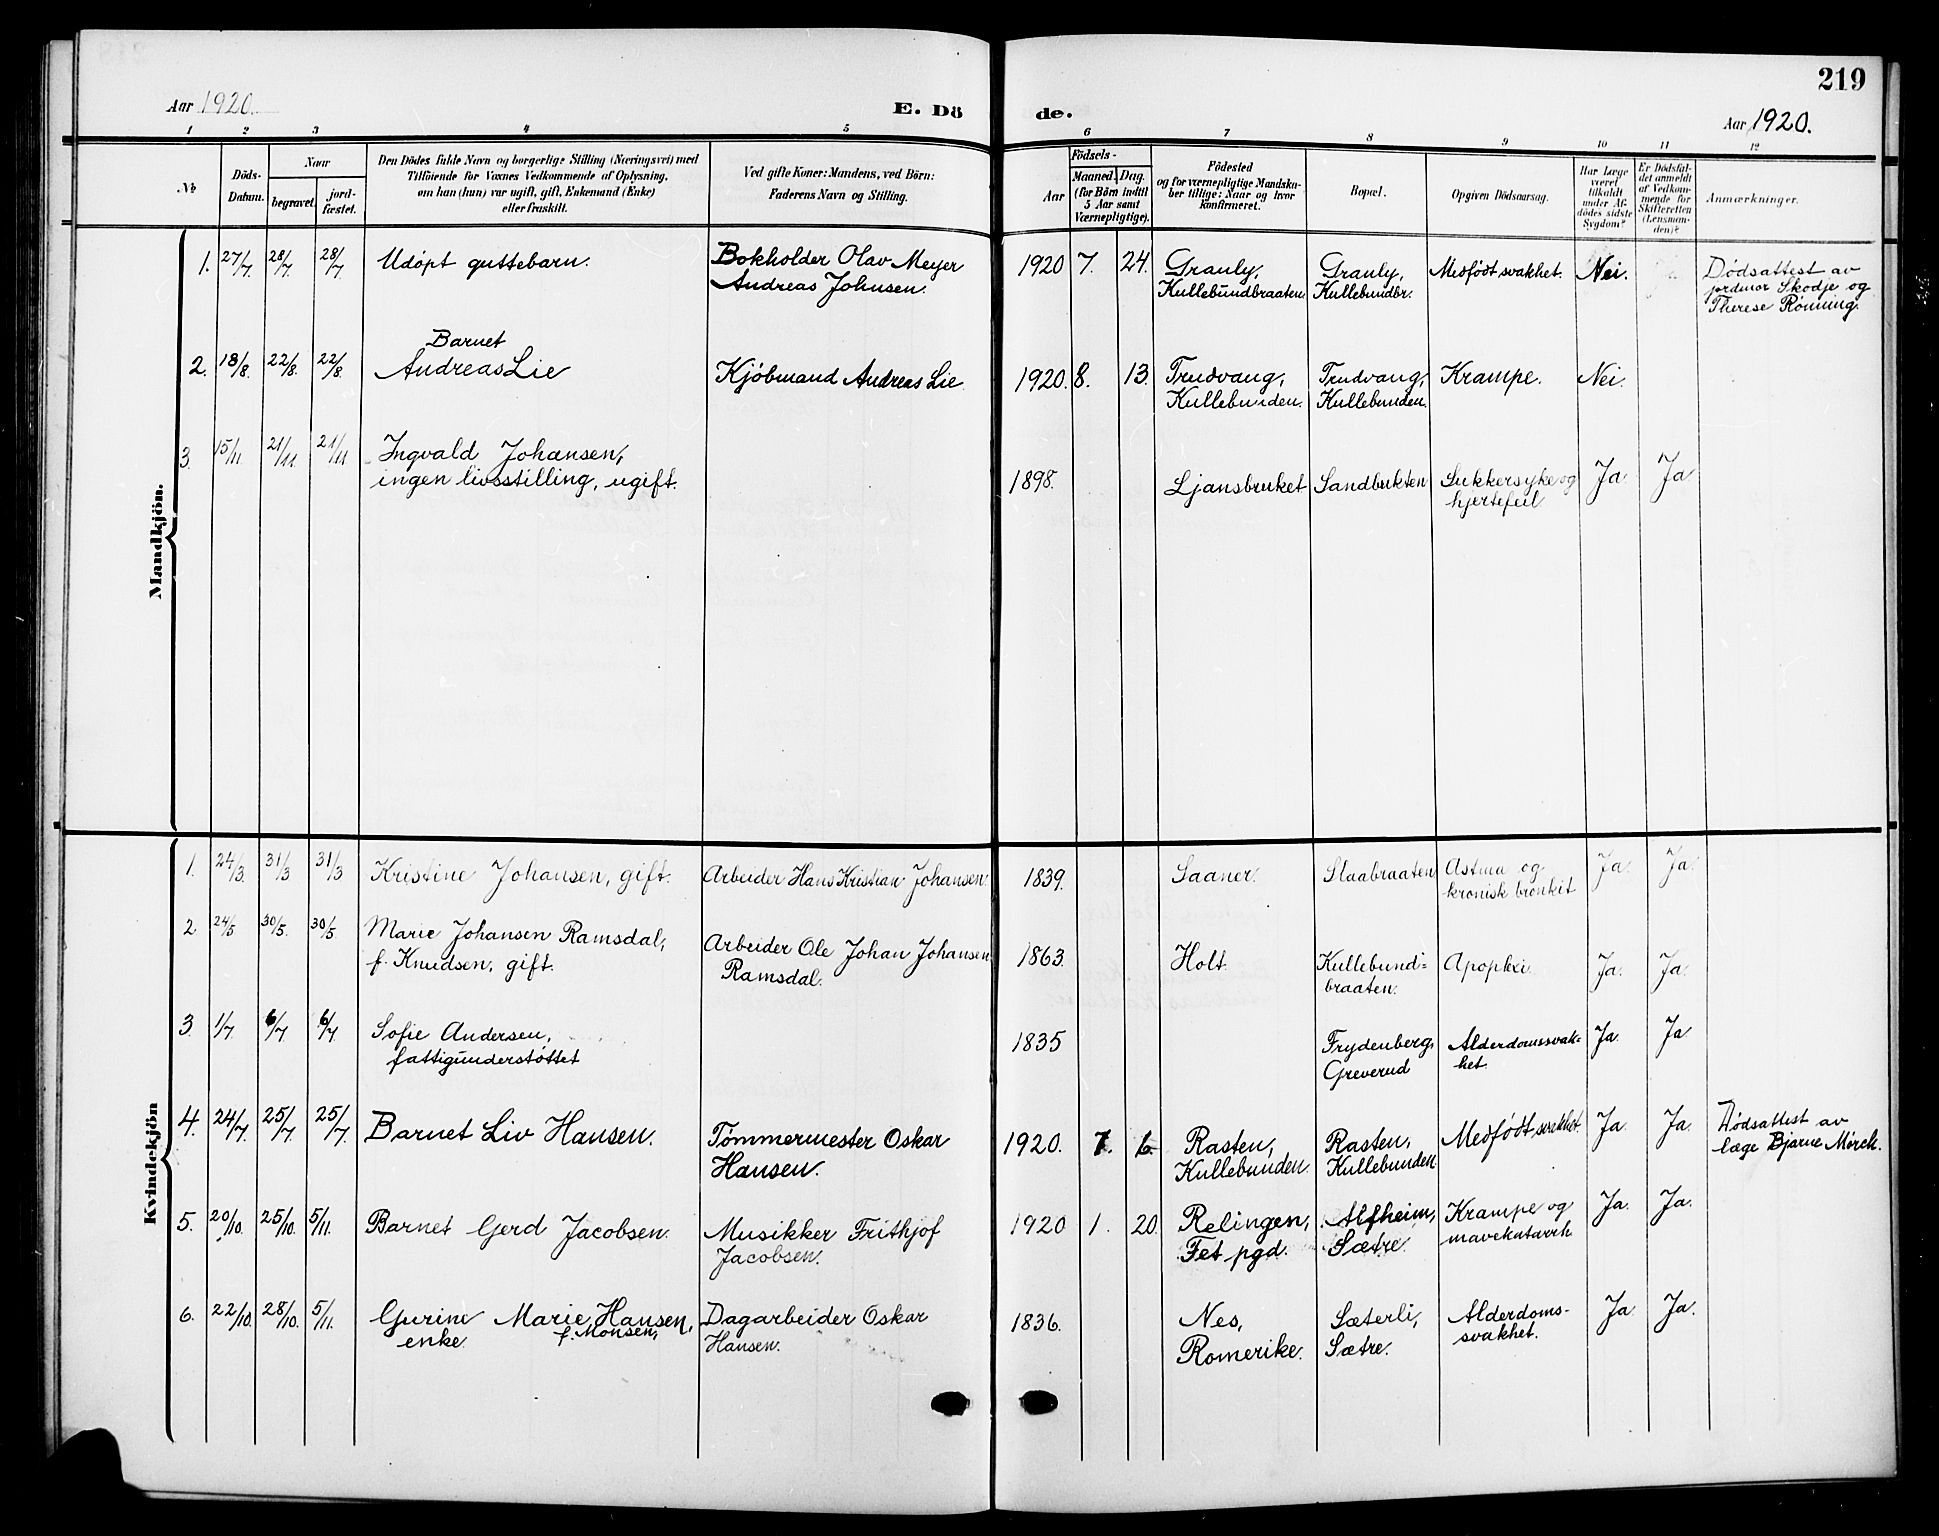 219
Aar 1920.
E. Dö
de.
Aar 1920.
1 2 3 4 5 6 7 8 9 10 11 12
No
Döds-
Datum.
Naar
begravet.
jord-
fæstet.
Den Dödes fulde Navn og borgerlige Stilling (Næringsvei) med
Tilföiende for Voxnes Vedkommende af Oplysning,
om han (hun) var ugift, gift, Enkemand (Enke)
eller fraskilt.
Ved gifte Koner: Mandens, ved Börn:
Faderens Navn og Stilling.
Födsels-
Aar
Maaned. Dag.
(for Börn indtil
5 Aar samt
Værnepligtige).
Födested
og for værnepligtige Mandska-
ber tillige: Naar og hvor
konfirmeret.
Bopæl.
Opgiven Dödsaarsag.
Har Læge
været
tilkaldt
under Af-
dödes sidste
Sygdom?
Er Dödsfal-
det anmeldt
af Vedkom-
mende for
Skifteretten
(Lensman-
den)?
Anmærkninger.
Mandkjön.
1. 27/7. 28/7 28/7 Udöpt guttebarn. Bokholder Olav Meyer
Andreas Johnsen.
1920 7. 24. Granly,
Kullebundbraaten.
Granly,
Kullebundbr.
Medfödt svakhet. Nei.
Dödsattest av
jordmor Skodje og
Therese Rønning.
2. 18/8. 22/8. 22/8. Barnet
Andreas Lie
Kjöbmand Andreas Lie.
1920. 8. 13. Trudvang,
Kullebunden.
Trudvang,
Kullebunden.
Krampe. Nei.
3. 15/11. 21/11. 21/11. Ingvald Johansen,
ingen livsstilling, ugift.
1898. Ljansbruket Sandbukten Sukkersyke og
hjertefeil
Ja Ja
Kvindekjön
1. 24/3. 31/3 31/3 Kristine Johansen, gift. Arbeider Hans Kristian Johansen.
1839. Saaner. Slaabraaten Astma og
kronisk bronkit
Ja. Ja.
2. 24/5 30/5. 30/5. Marie Johansen Ramsdal,
f. Knudsen, gift.
Arbeider Ole Johan Johansen
Ramsdal.
1863. Holt. Kullebund=
braaten.
Apoplexi. Ja. Ja.
3. 1/7. 6/7 6/7. Sofie Andersen,
fattigunderstöttet
1835 Frydenberg,
Greverud
Alderdomssvak=
het.
Ja. Ja.
4. 24/7. 25/7. 25/7. Barnet Liv Hansen. Tömmermester Oskar
Hansen.
1920. 7. 6. Rasten,
Kullebunden.
Rasten,
Kullebunden
Medfödt svakhet. Ja. Ja.
Dödsattest av
læge Bjarne Mørch.
5. 20/10. 25/10. 5/11. Barnet Gerd Jacobsen. Musikker Frithjof
Jacobsen.
1920 1. 20. Relingen,
Fet pgd.
Alfheim,
Sætre.
Krampe og
mavekatarrh
Ja. Ja.
6. 22/10. 28/10. 5/11. Gurine Marie Hansen,
enke. f. Monsen,
Dagarbeider Oskar
Hansen.
1836. Nes,
Romerike.
Sæterli,
Sætre.
Alderdoms-
svakhet.
Ja. Ja.